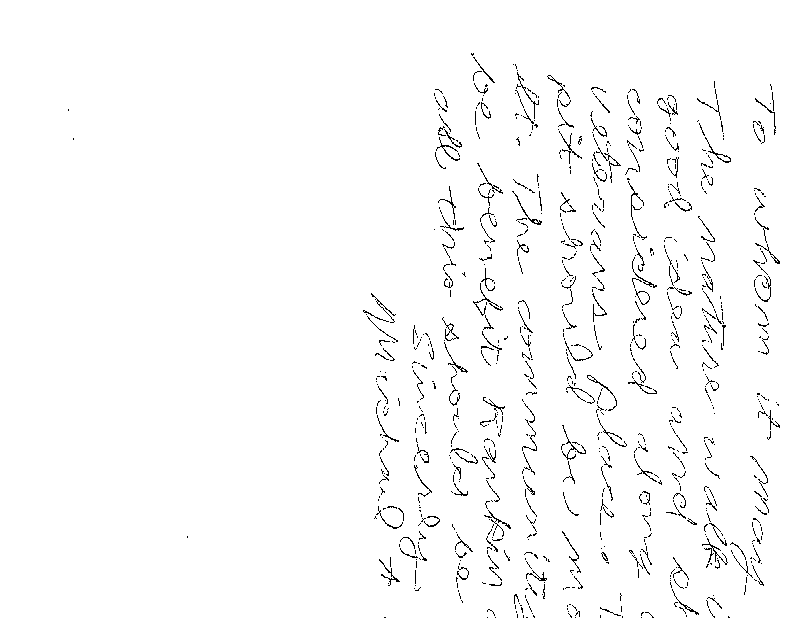 To whom it may
The nature walk i
good idea and sh
considered along
veterans place. T
pit should be mo
it. The community
be benefit Rankin
all this should be
Sincerly
Michael